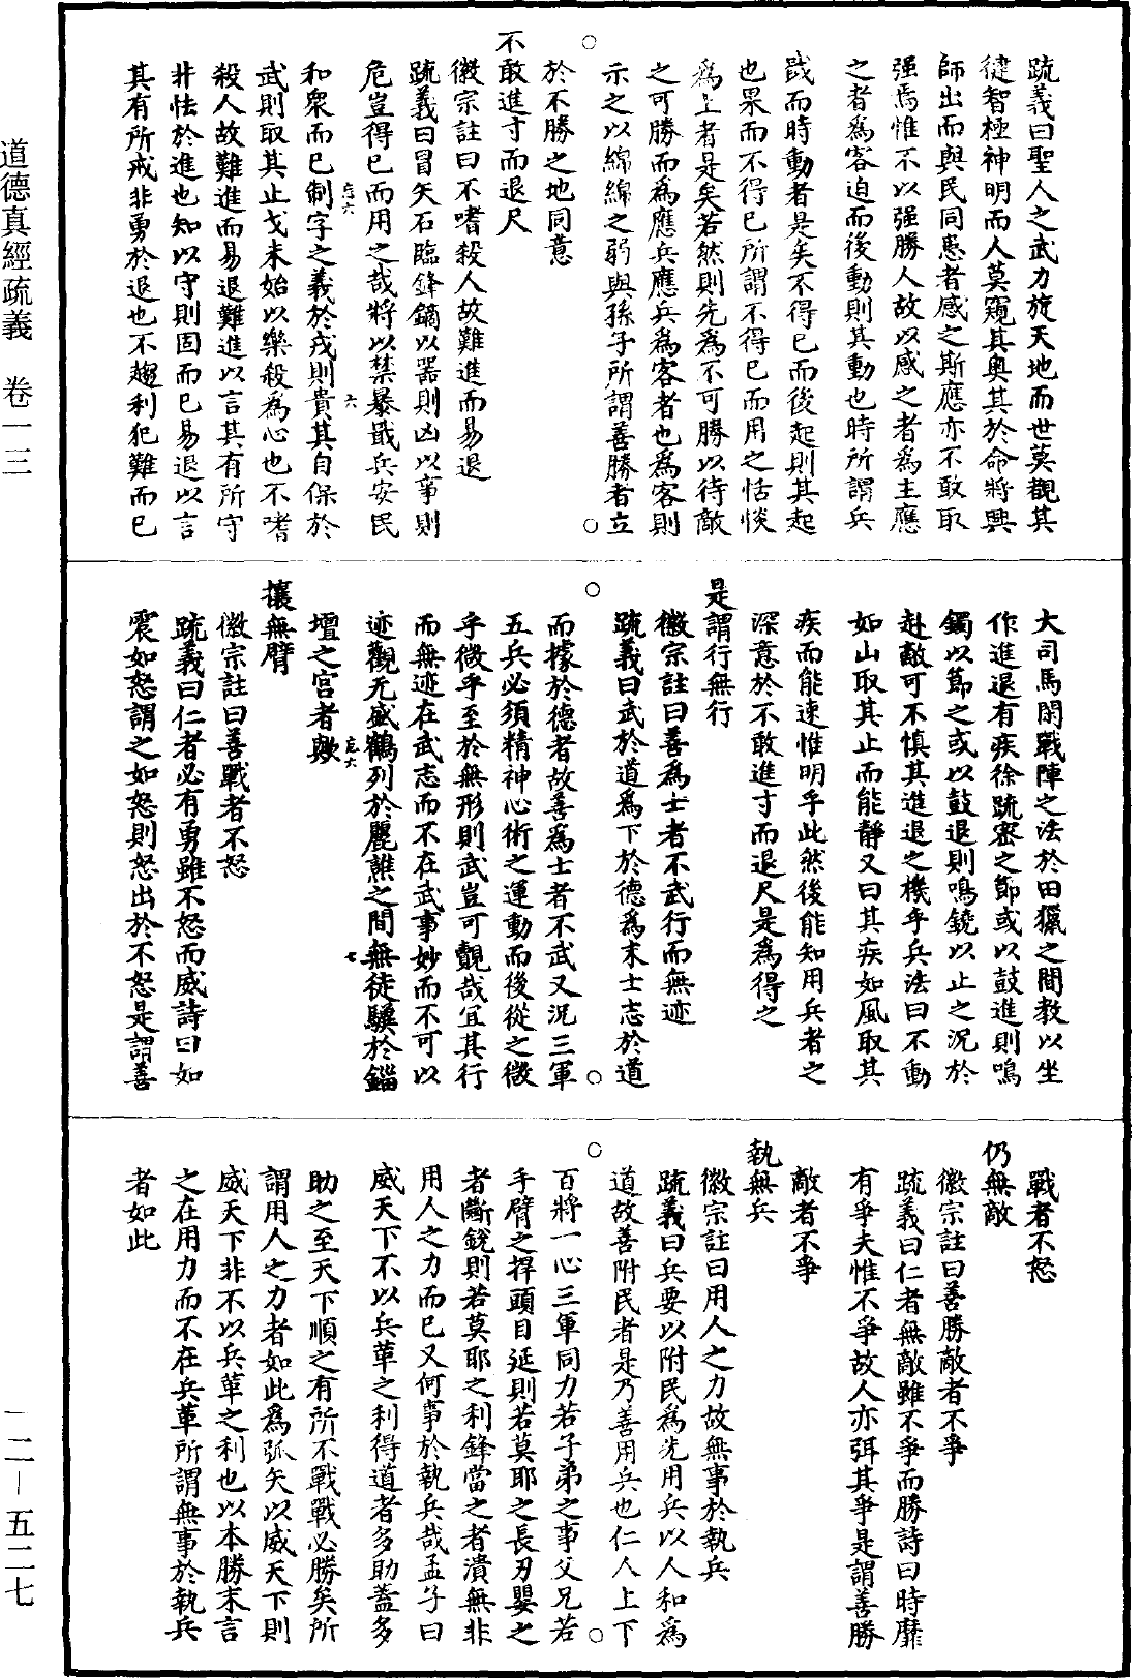 疏義曰聖人之武力旋天地而世莫覩其
健智極神明而人莫窺其奥其於命將興
師出而與民同患者感之斯應亦不敢取
强焉惟不以强勝人故以感之者爲主應
之者爲客迫而後動則其動也時所謂兵
戢而時動者是矣不得已而後起則其起
也果而不得已所謂不得已而用之恬惔
爲上者是矣若然則先爲不可勝以待敵
之可勝而爲應兵應兵爲客者也爲客則
示之以綿綿之弱與孫子所謂善勝者立
於不勝之地同意
不敢進寸而退尺
徽宗註曰不嗜殺人故難進而易退
疏義曰冒矢石臨鋒鏑以器則凶以事則
危豈得已而用之哉將以禁暴戢兵安民
和衆而已制字之義於戎則貴其自保於
武則取其止戈未始以樂殺為心也不嗜
殺人故難進而易退難進以言其有所守
非怯於進也知以守則固而已易退以言
其有所戒非勇於退也不趨利犯難而已
大司馬閑戰陣之法於田獵之間教以坐
作進退有疾徐疏密之節或以鼓進則鳴
鐲以節之或以鼓退則鳴鐃以止之況於
赴敵可不慎其進退之機乎兵法曰不動
如山取其止而能靜又曰其疾如風取其
疾而能速惟明乎此然後能知用兵者之
深意於不敢進寸而退尺是爲得之
是謂行無行
徽宗註曰善爲士者不武行而無迹
疏義曰武於道爲下於德爲末士志於道
而據於德者故善爲士者不武又況三軍
五兵必須精神心術之運動而後從之微
乎微乎至於無形則武豈可觀哉宜其行
而無迹在武志而不在武事妙而不可以
迹觀无盛鶴列於麗譙之間無徒驥於錙
壇之宮者歟
攘無臂
徽宗註曰善戰者不怒
疏義曰仁者必有勇雖不怒而威詩曰如
震如怒謂之如怒則怒出於不怒是謂善
戰者不怒
仍無敵
徽宗註曰善勝敵者不爭
疏義曰仁者無敵雖不爭而勝詩曰時靡
有爭夫惟不爭故人亦弭其爭是謂善勝
敵者不爭
執無兵
徽宗註曰用人之力故無事於執兵
疏義曰兵要以附民爲先用兵以人和爲
道故善附民者是乃善用兵也仁人上下
百將一心三軍同力若子弟之事父兄若
手臂之捍頭目延則若莫耶之長刃嬰之
者斷銳則若莫耶之利鋒當之者潰無非
用人之力而已又何事於執兵哉孟子曰
威天下不以兵革之利得道者多助蓋多
助之至天下順之有所不戰戰必勝矣所
謂用人之力者如此爲弧矢以威天下則
威天下非不以兵革之利也以本勝末言
之在用力而不在兵革所謂無事於執兵
者如此
道德真經疏義　卷一三
一二—五二七